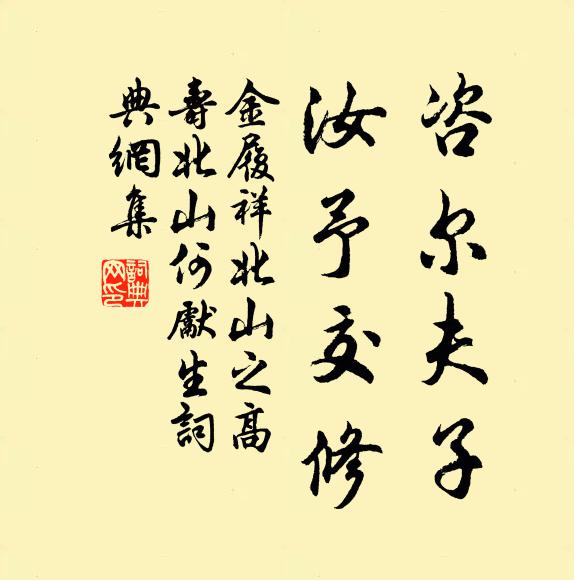 咨尔夫子
汝予交修
金履祥北山之高
壽北山何獻生詞
典網集
詞典網印